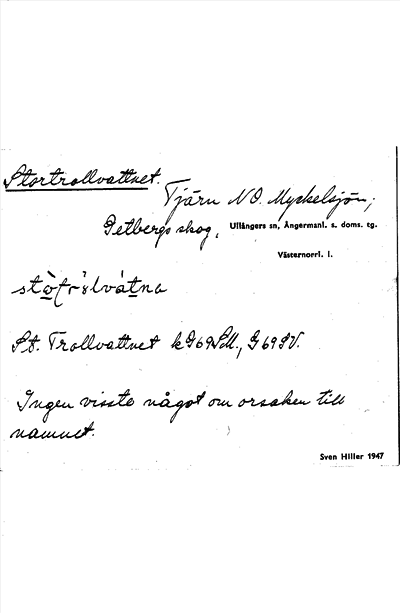 Stortrollvattnet.
Tjärn NO. Myckelsjön;
Getbergs skog, Ullångers sn, Ångermanl. s. doms. tg.
Västernorrl. l.
St. Trollvattnet
Ingen visste något om orsaken till
namnet.
Sven Hiller 1947